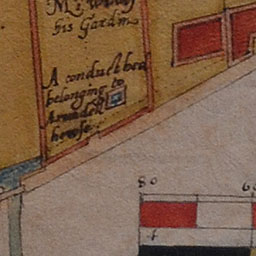 his Gardin
A conduit hed
belonging to
Arundell
howse
80 60